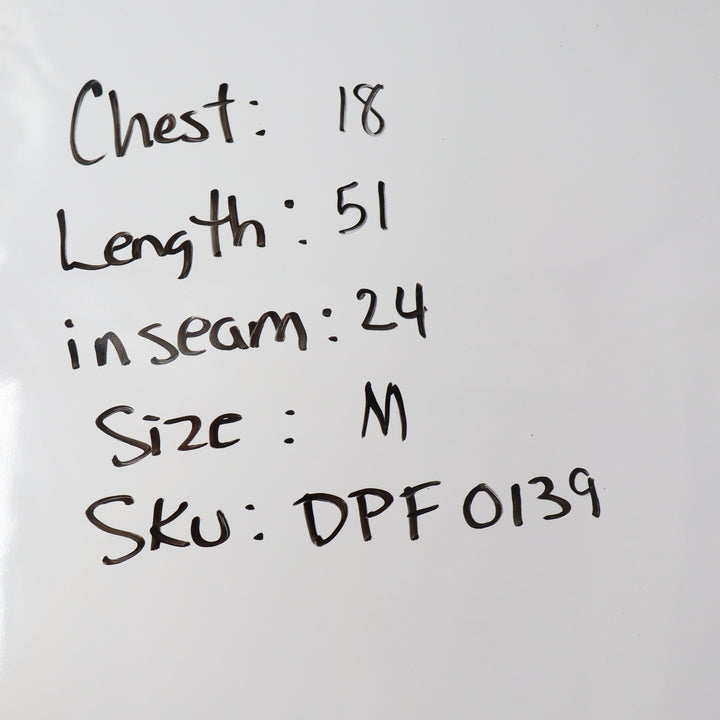 Chest: 18
Length: 51
inseam: 24
Size: M
SKU: DPF 0139